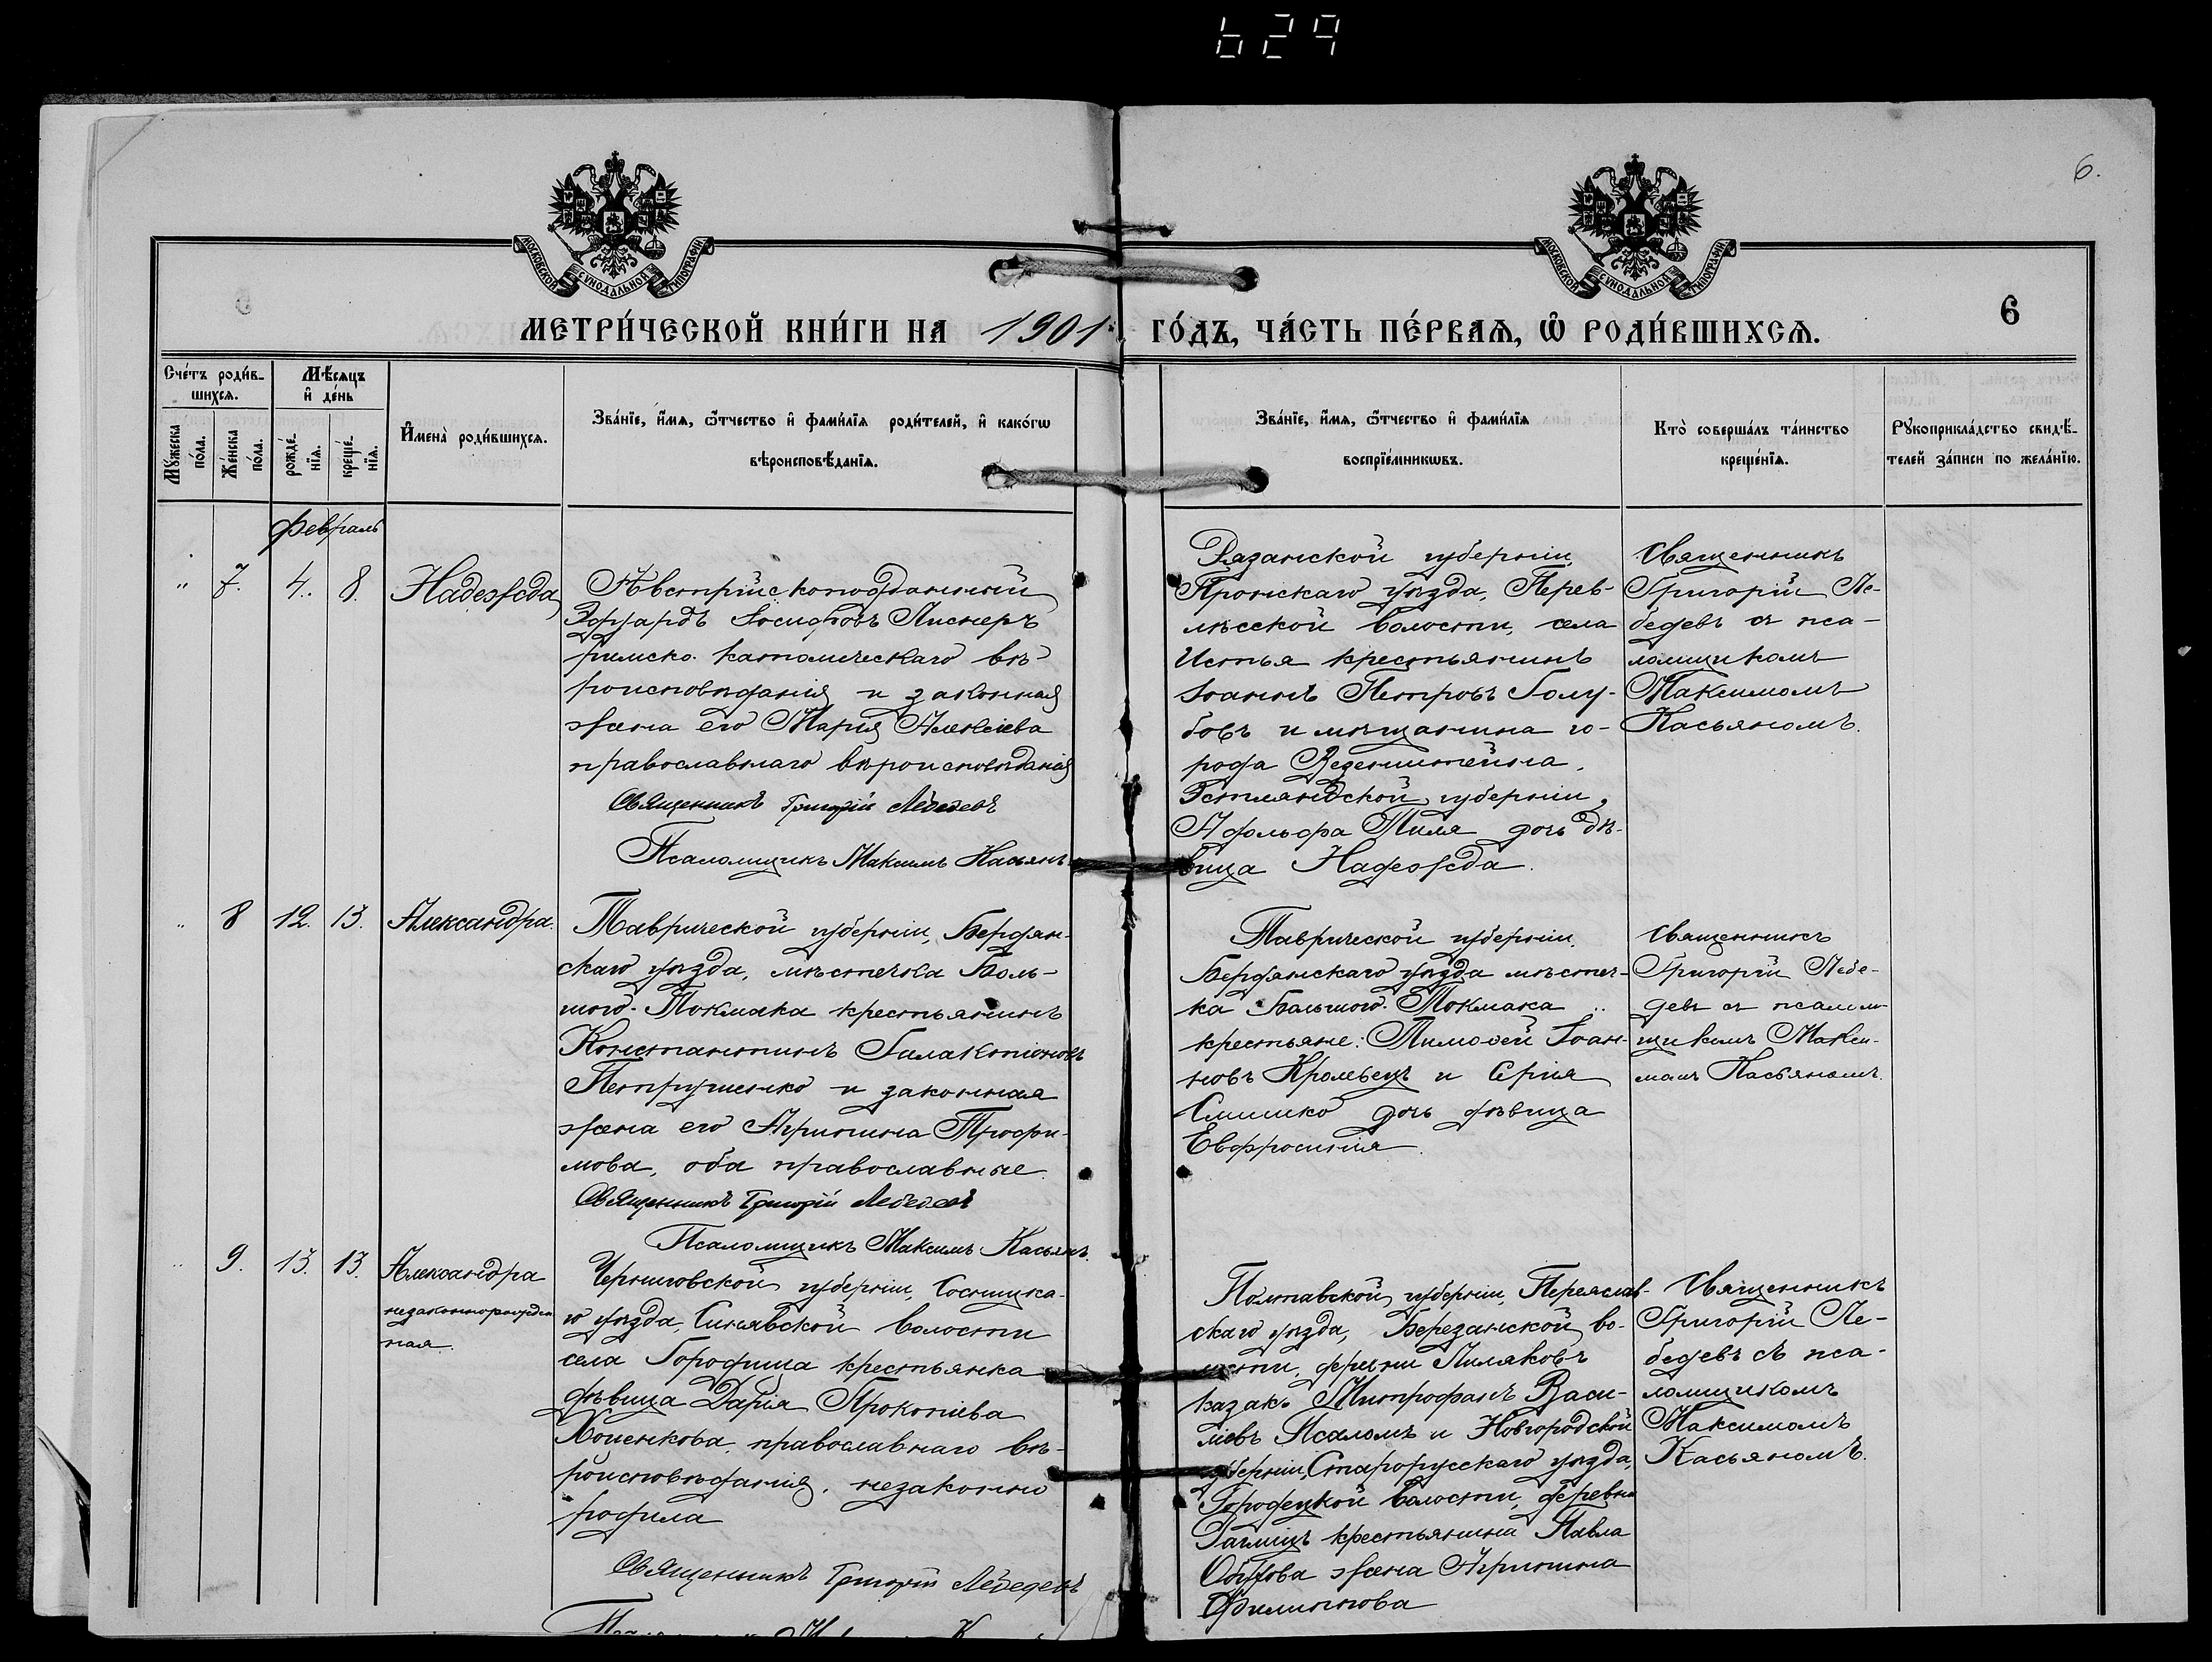 629
6.
МОСКОВСКОЙ СУНОДАЛЬНОЙ ТИПОГРАФІИ
МОСКОВСКОЙ СУНОДАЛЬНОЙ ТИПОГРАФІИ
6
МЕТРИ́ЧЕСКОЙ КНИ́ГИ НА 1901 ГО́ДЪ, ЧА́СТЬ ПЕ́РВАѦ, Ѡ҆ РОДИ́ВШИХСѦ.
Сче́тъ роди́в-
шихсѧ.
Мѣ́сѧцъ
и҆ де́нь
Мꙋ́жеска
по́ла.
Же́нска
по́ла.
рожде́-
нїѧ.
креще́-
нїѧ.
И҆мена̀ роди́вшихсѧ.
Зва́нїе, и҆́мѧ, ѻ҆́тчество и҆ фами́лїѧ роди́телей, и҆ како́гѡ
вѣроисповѣ́данїѧ.
Зва́нїе, и҆́мѧ, ѻ҆́тчество и҆ фами́лїѧ
воспрїе́мникѡвъ.
Кто̀ соверша́лъ та́инство
креще́нїѧ.
Рꙋкоприкла́дство свидѣ́-
телей за́писи по жела́нїю.
Февраль
" 7. 4. 8. Надежда
Австрійскоподданный
Эдуардъ Іосифовъ Лиснеръ
римско-католическаго вѣ-
роисповѣданія и законная
жена его Марія Алексіева
православнаго вѣроисповѣданія
Священникъ Григорій Лебедевъ
Псаломщикъ Максимъ Касьянъ
Рязанской губерніи,
Пронскаго уѣзда, Перев-
лѣсской волости, села
Истья крестьянинъ
Іоаннъ Петровъ Голу-
бовъ и мѣщанина го-
рода Везенштейна,
Эстляндской губерніи,
Адольфа Тиля дочь дѣ-
вица Надежда.
Священникъ
Григорій Ле-
бедевъ съ пса-
ломщикомъ
Максимомъ
Касьяномъ.
" 8 12. 13. Александра.
Таврической губерніи, Бердян-
скаго уѣзда, мѣстечка Боль-
шого-Токмака крестьянинъ
Константинъ Галактіоновъ
Петрушенко и законная
жена его Агрипина Трофи-
мова, оба православные.
Священникъ Григорій Лебедевъ
Псаломщикъ Максимъ Касьянъ.
Таврической губерніи,
Бердянскаго уѣзда мѣстеч-
ка Большого-Токмака
крестьяне: Тимоѳей Іоан-
новъ Кролевецъ и
дочь дѣвица
Евфросинія.
Священникъ
Григорій Лебе-
девъ съ псалом-
щикомъ Макси-
момъ Касьяномъ.
" 9. 13. 13. Александра
незаконнорожден
ная.
Черниговской губерніи, Сосницка-
го уѣзда, Синявской волости
села Городища крестьянка
дѣвица Дарія Прокопіева
православнаго вѣ-
роисповѣданія, незаконно
родила
Священникъ Григорій Лебедевъ
Полтавской губерніи, Переяслав-
скаго уѣзда, Березанской во-
лости, деревни Пиляковъ
казакъ Митрофанъ Васи-
ліевъ Псаломъ и Новгородской
губерніи, Старорусскаго уѣзда,
Городецкой волости, деревни
крестьянина Павла
жена Агрипина
Филиппова
Священникъ
Григорій Ле-
бедевъ съ пса-
ломщикомъ
Максимомъ
Касьяномъ.